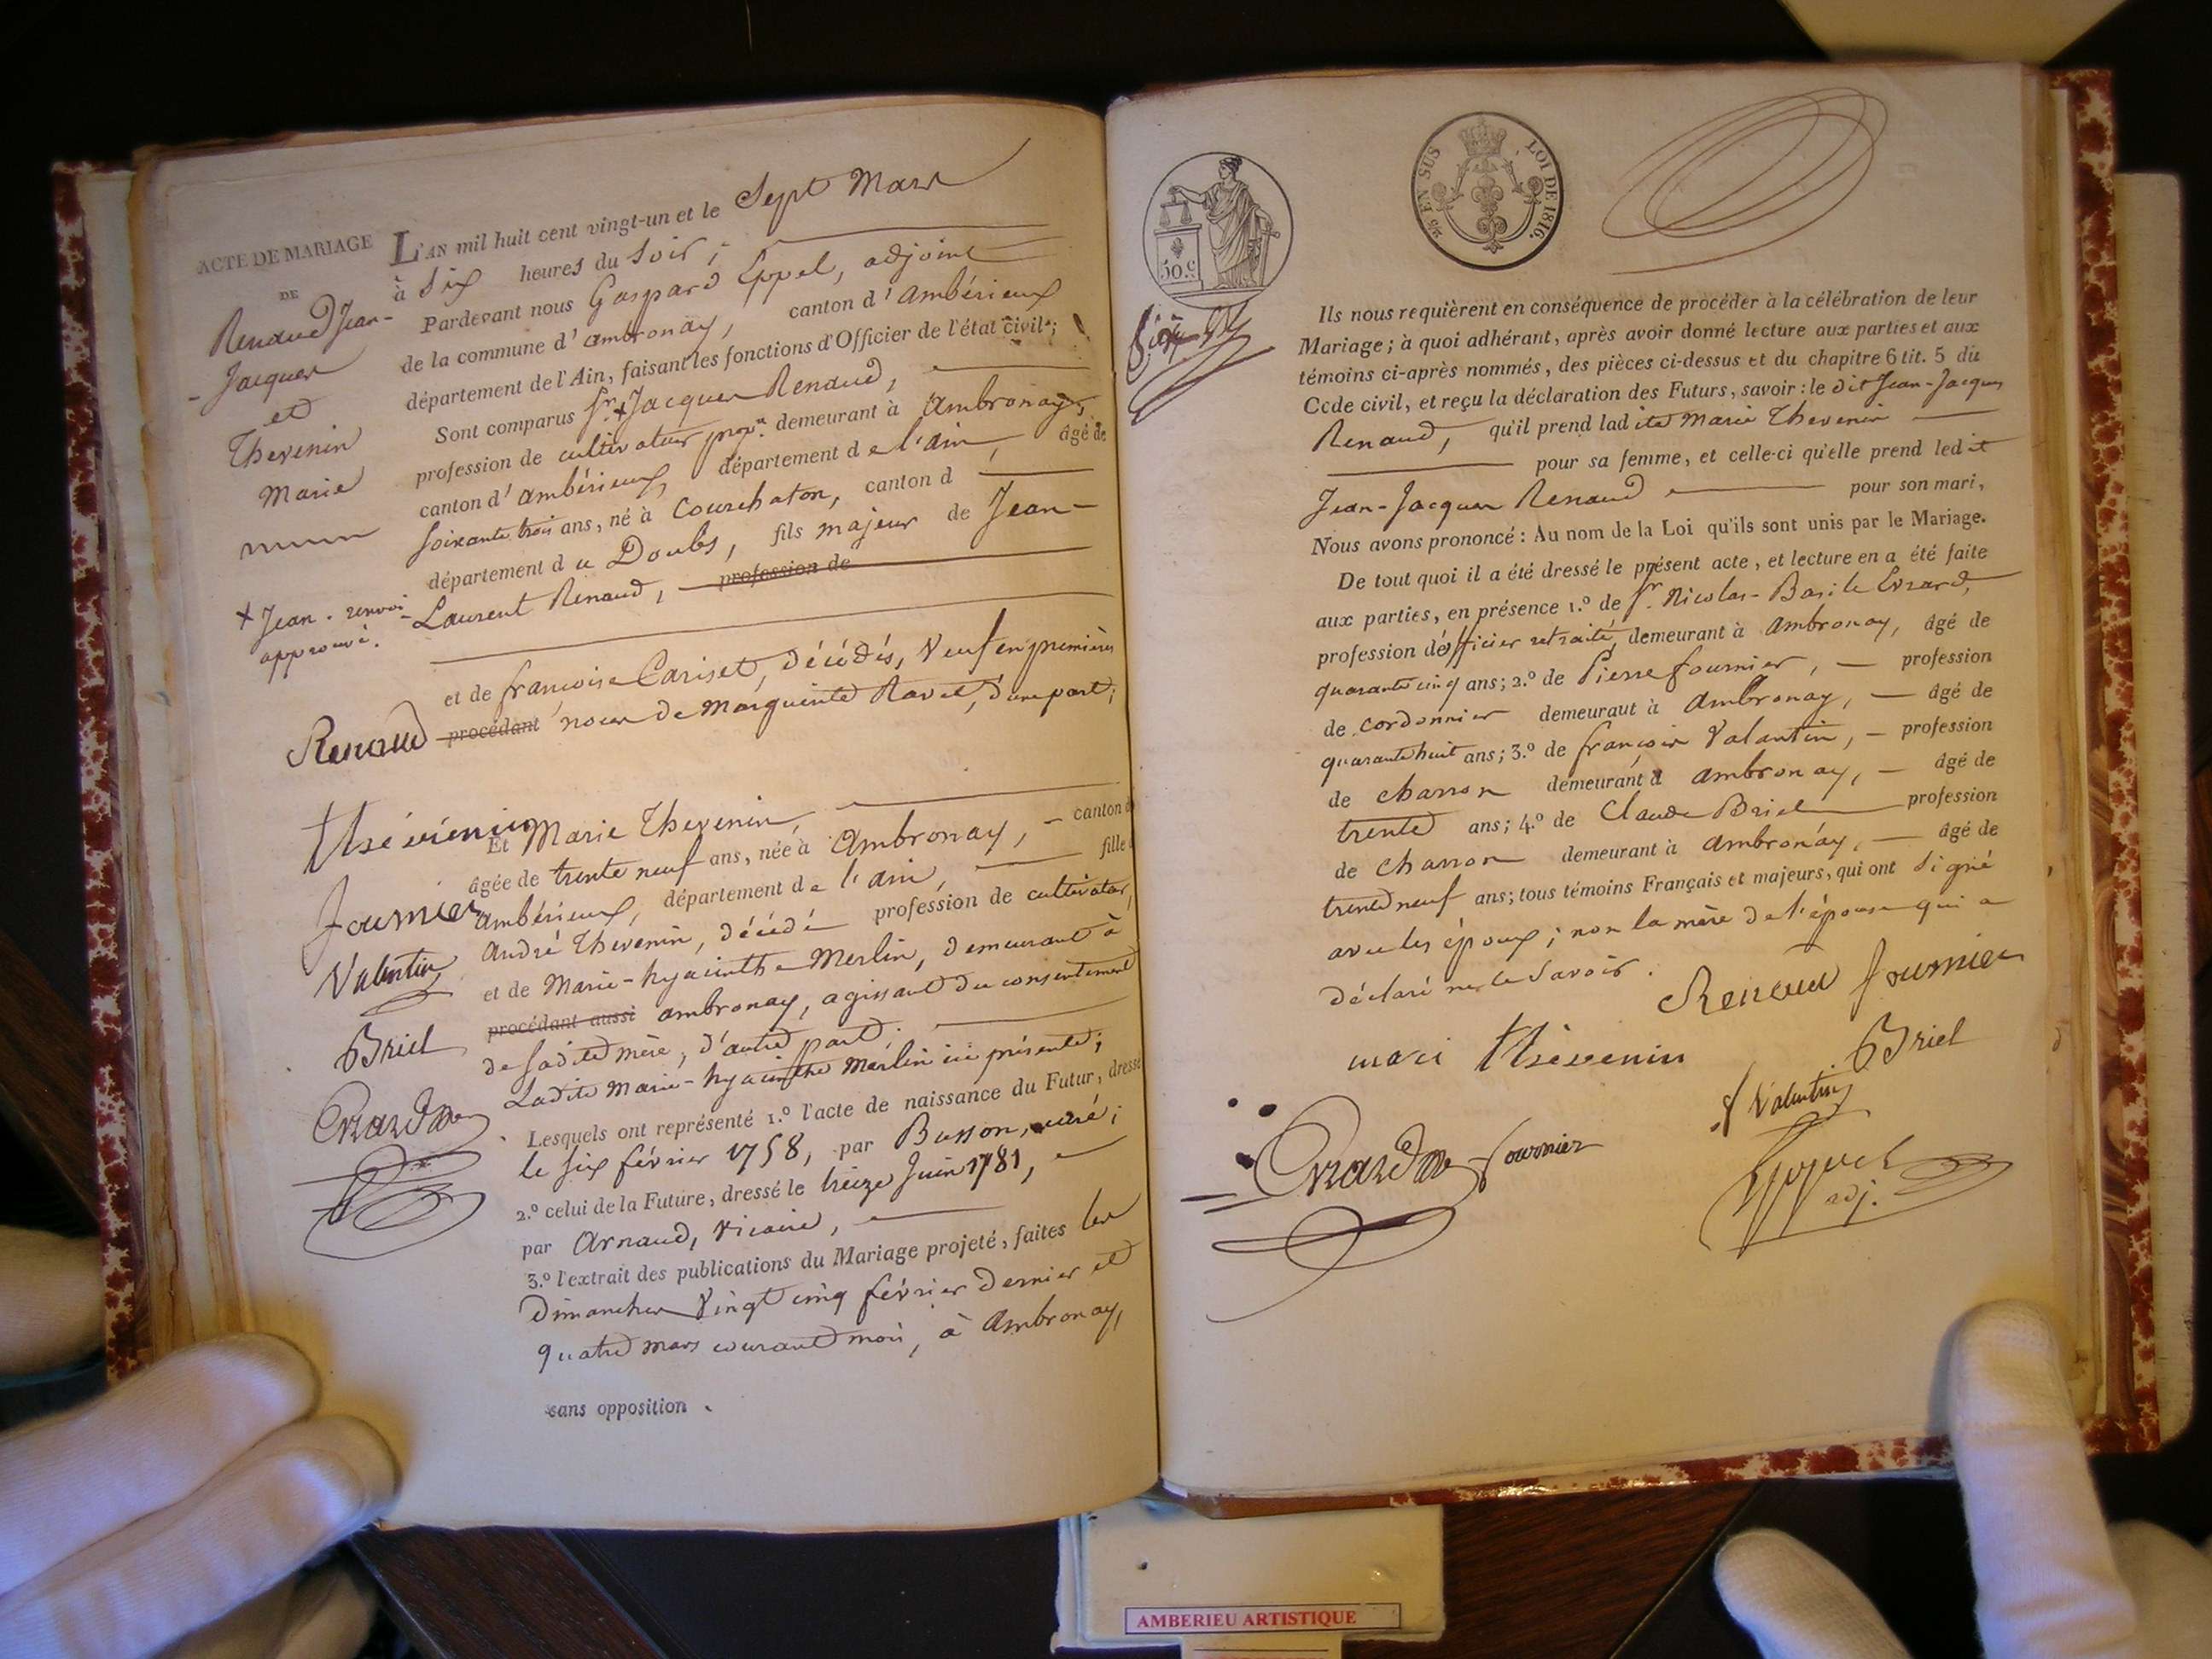 ACTE DE MARIAGE
DE
Renaud Jean-
Jacques
et
Thevenin
Marie
+ Jean. renvoi
approuvé.
Renaud
thévenin
fournier
Valentin
Briel
L'AN mil huit cent vingt-un et le Sept Mars
à Six heures du Soir;
Pardevant nous Gaspard Eppel, adjoint
de la commune d'ambronay, canton d'ambérieux
département de l'Ain, faisant les fonctions d'Officier de l'état civil;
Sont comparus Sr + Jacques Renaud,
profession de cultivateur propre. demeurant à Ambronay,
canton d'ambérieux, département de l'ain, âgé de
Soixante trois ans, né à Courchaton, canton d
département du Doubs, fils majeur de Jean-
-Laurent Renaud, profession de
et de françoise Cariset, décédés, Veuf en premières
procédant noces de Marguerite Ravet, d'une part;
Et Marie Thevenin,
âgée de trente neuf ans, née à Ambronay, canton d
Ambérieux, département de l'ain, fille
André Thevenin, décédé profession de cultivateur,
et de Marie-hyacinthe Merlin, demeurant à
procédant aussi ambronay, agissant du consentement
de sadite mère, d'autre part.
Ladite Marie-hyacinthe Merlin ici présente;
Lesquels ont représenté 1.º l'acte de naissance du Futur, dressé
le six février 1758, par Busson, curé;
2.º celui de la Future, dressé le treize Juin 1781,
par Arnaud, vicaire,
3.º l'extrait des publications du Mariage projeté, faites les
Dimanches Vingt cinq février dernier et
quatre mars courant mois, à Ambronay,
sans opposition.
50.c
2/5 EN SUS LOI DE 1816.
Ils nous requièrent en conséquence de procéder à la célébration de leur
Mariage; à quoi adhérant, après avoir donné lecture aux parties et aux
témoins ci-après nommés, des pièces ci-dessus et du chapitre 6 tit. 5 du
Code civil, et reçu la déclaration des Futurs, savoir: le dit Jean-Jacques
Renaud, qu'il prend ladite Marie Thevenin
pour sa femme, et celle-ci qu'elle prend ledit
Jean-Jacques Renaud pour son mari,
Nous avons prononcé: Au nom de la Loi qu'ils sont unis par le Mariage.
De tout quoi il a été dressé le présent acte, et lecture en a été faite
aux parties, en présence 1.º de Sr. Nicolas-Basile Evrard,
profession d'officier retraité, demeurant à Ambronay, âgé de
quarante cinq ans; 2.º de Pierre fournier, profession
de cordonnier demeurant à Ambronay, âgé de
quarante huit ans; 3.º de françois Valantin, profession
de charron demeurant à ambronay, âgé de
trente ans; 4.º de Claude Briel profession
de charron demeurant à ambronay, âgé de
trente neuf ans; tous témoins Français et majeurs, qui ont signé
avec les époux; non la mère de l'épouse qui a
déclaré ne le savoir.
Renaud fournier
mari thévenin Briel
f Valentin
fournier
Eppel
adj.
AMBERIEU ARTISTIQUE